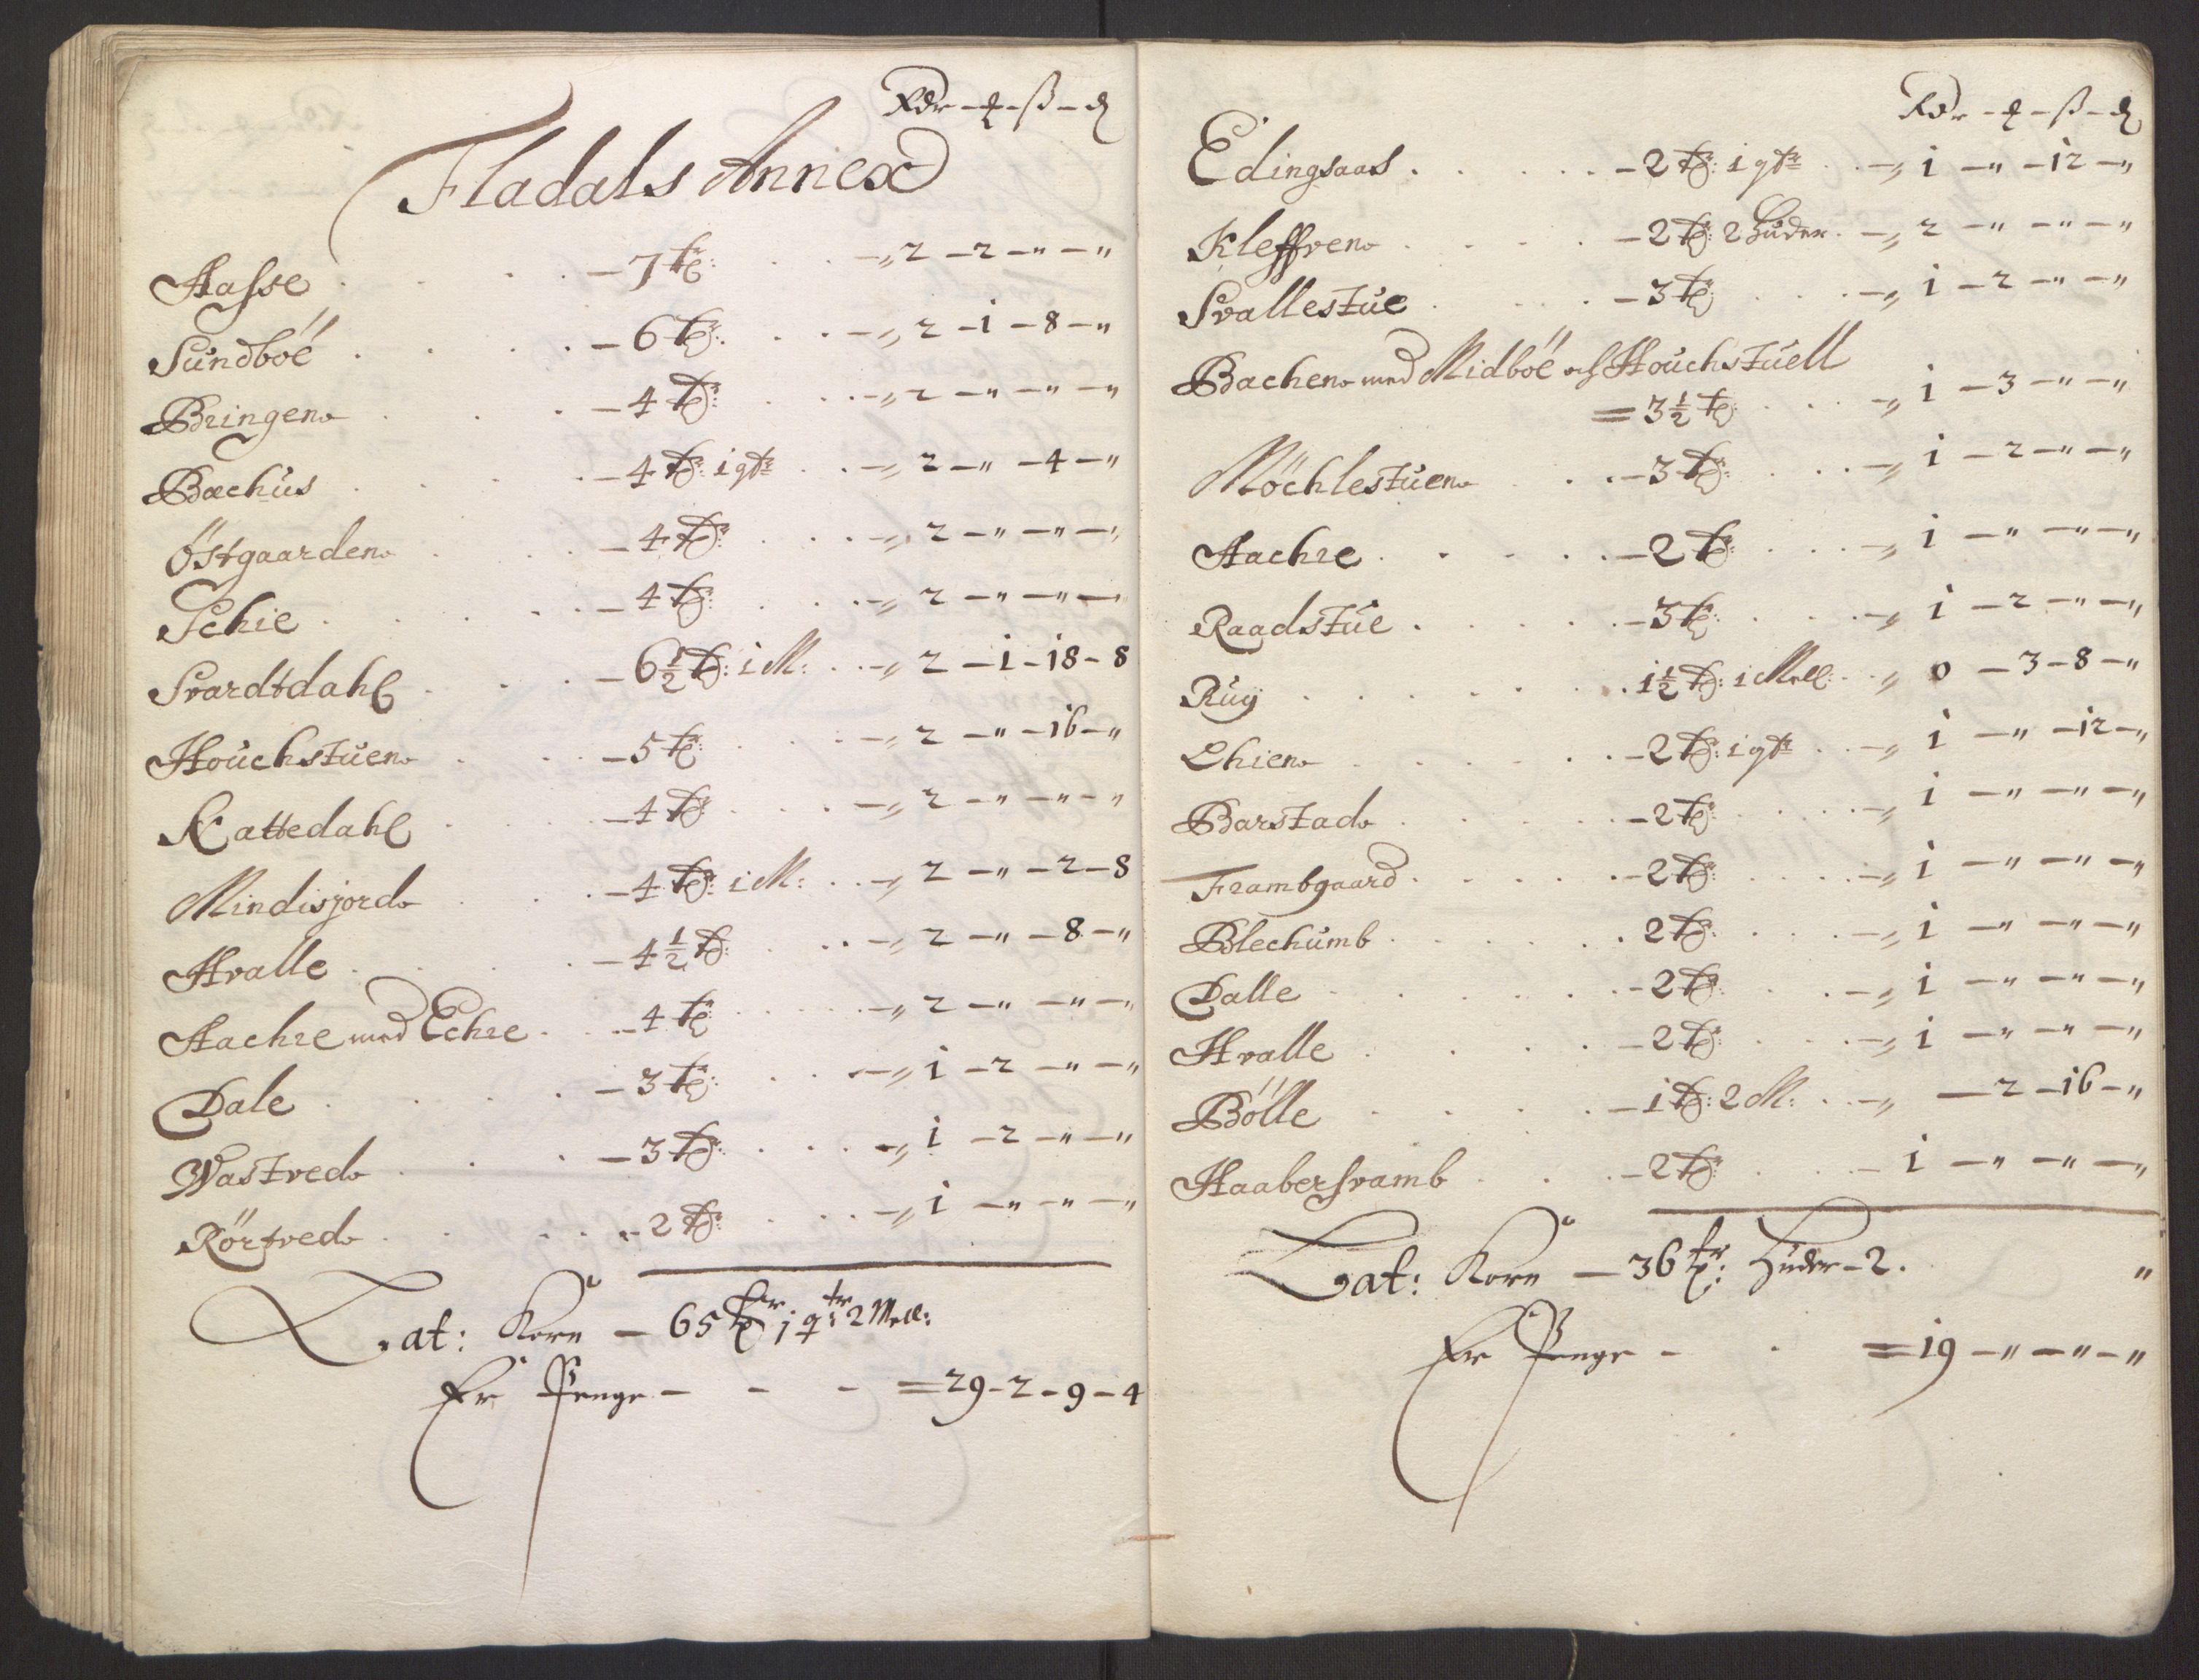 Rdr - ₰ - ß - ₰
Fladals Annex
Aasse . . . - 7 tr: . . -„ 2 - 2 - „ - „
Sundböe . . . - 6 tr: . . -„ 2 - 1 - 8 - „
Bringen . . . - 4 tr: . . -„ 2 - „ - „ - „
Bachus . . . - 4 tr: 1 qtr . . -„ 2 - „ - 4 - „
Östgaarden . . . - 4 tr: . . -„ 2 - „ - „ - „
Schie . . . - 4 tr: . . -„ 2 - „ - „ - „
Svardtdahl . . . - 6 1/2 tr: 1 M: . . -„ 2 - 1 - 18 - 8
Houchstuen . . . - 5 tr: . . -„ 2 - „ - 16 - „
Kattedahl . . . - 4 tr: . . -„ 2 - „ - „ - „
Mindisjord . . . - 4 tr: 1 M: . . -„ 2 - „ - 2 - 8
Hvalle . . . - 4 1/2 tr: . . -„ 2 - „ - 8 - „
Aachre med Echre . . . - 4 tr: . . -„ 2 - „ - „ - „
Dale . . . - 3 tr: . . -„ 1 - 2 - „ - „
Wastved . . . - 3 tr: . . -„ 1 - 2 - „ - „
Rörtved . . . - 2 tr: . . -„ 1 - „ - „ - „
Lat: Korn - 65 tr 1 qtr: 2 Mell:
Er Penge - - - = 29 - 2 - 9 - 4
Rdr - ₰ - ß - ₰
Edingsaas . . . - 2 tr: 1 qtr . . -„ 1 - „ - 12 - „
Kleffven . . . - 2 tr: 2 Huder . -„ 2 - „ - „ - „
Svallestue . . . - 3 tr: . . -„ 1 - 2 - „ - „
Bachen med Midböe och Houchstuell
= 3 1/2 tr: . . -„ 1 - 3 - „ - „
Möchlestuen . . . - 3 tr: . . -„ 1 - 2 - „ - „
Aachre . . . - 2 tr: . . -„ 1 - „ - „ - „
Raadstue . . . - 3 tr: . . -„ 1 - 2 - „ - „
Ruy . . . 1 1/2 tr: 1 Mell: . „ 0 - 3 - 8 - „
Lhien . . . - 2 tr: 1 qtr . . -„ 1 - „ - 12 - „
Barstad . . . - 2 tr: . . -„ 1 - „ - „ - „
Frambgaard . . . - 2 tr: . . -„ 1 - „ - „ - „
Blechumb . . . 2 tr: . . -„ 1 - „ - „ - „
Dalle . . . - 2 tr: . . -„ 1 - „ - „ - „
Hvalle . . . - 2 tr: . . -„ 1 - „ - „ - „
Bölle . . . - 1 tr: 2 M: . . -„ - 2 - 16 - „
Haabersvamb . . . - 2 tr: . . - 1 - „ - „ - „
Lat: Korn - 36 tr: Huder - 2 . „
Er Penge - . = 19 - „ - „ - „